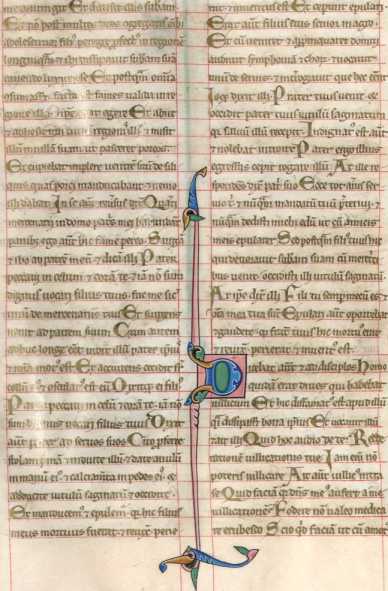 me contingit Et diuisit illis subam
Et nō post multos dies ↄgregatis oīb
adolescentior fili' pegre pfect' ē in regionē
longinquā ⁊ ibi dissipauit subam suā
uiuendo luxuriose Et postqm omīa
ↄsumasset facta ē fames ualida in re
gione illa ⁊ ipe cepit egere Et abiit
⁊ adhesit uni ciuium regionis illi' ⁊ misit
illum in uillam suam ut pasceret porcos
Et cupiebat implere uentrē suū de sili
quis quas porci manducabant ⁊ nemo
illi dabat In se aūt reuersus dix Quanti
mercenarii in domo patris mei habundant
panib ego aūt hic fame pereo Surgā
⁊ ibo ad patrē meū ⁊ dicā illi Pater
peccaui in celum ⁊ corā te ⁊ iā nō sum
dignus uocari filius tuus fac me sic
unū de mercenariis tuis Et surgens
uenit ad patrem suum Cum autem
adhuc longe eēt uidit illū pater ipius
⁊ mīa mot' est Et accurrens cecidit sr
collū ei' ⁊ osculat' est eū Dixitq ei fili
Pater peccaui in celū ⁊ corā te iā nō
sum dign' uocari filius tuus Dixit
aūt pater ad seruos suos Cito pferte
stolam primā ⁊ induite illū ⁊ date anulū
in manū ei' ⁊ calciamta in pedes ei' ⁊
adducite uitulū saginatū ⁊ occidite
Et manducem' ⁊ epulem' q hic filius
meus mortuus fuerat ⁊ reuixit perie
rat ⁊ inuentus est Et ceperunt epulari
Erat aūt filius eius senior in agro
Et cū ueniret ⁊ appinquaret domui
audiuit symphoniā ⁊ chorū ⁊ uocauit
unū de seruis ⁊ interrogauit que hec eent
Isq dixit illi Frater tuus uenit ⁊
occidit pater tuus uitulū saginatum
q saluū illū recepit Indignat' est aūt
⁊ nolebat introire Pater ergo illius
egressus cepit rogare illū At ille re
spondēs dix patri suo Ecce tot annis ser
uio t' ⁊ nūqm mandatū tuū pterii ⁊
nūqm dedisti michi edū ut cū amicis
meis epularer Sed postqm fili' tuus hic
qui deuorauit subam suam cū meretri
cibus uenit occidisti illi uitulū saginatū
At ipe dix illi Fili tu semp mecū es
⁊ omīa mea tua sūt Epulari aūt oportebat
⁊ gaudere q frater tuus hic mortu' erat
⁊ reuix perierat ⁊ inuent' est
Dicebat aūt ⁊ ad disciplos Homo
quidam erat diues qui habebat
uillicum Et hic diffamat' est apud illū
q dissipasset bona ipius Et uocauit illū
⁊ ait illi Quid hoc audio de te Redde
rationē uillicationis tue Iam eni nō
poteris uillicare Ait aūt uillic' intra
se Quid faciā q dns me' aufert a me
uillicationē Fodere nō ualeo mendica
re erubesco Scio qd faciā ut cū amot'